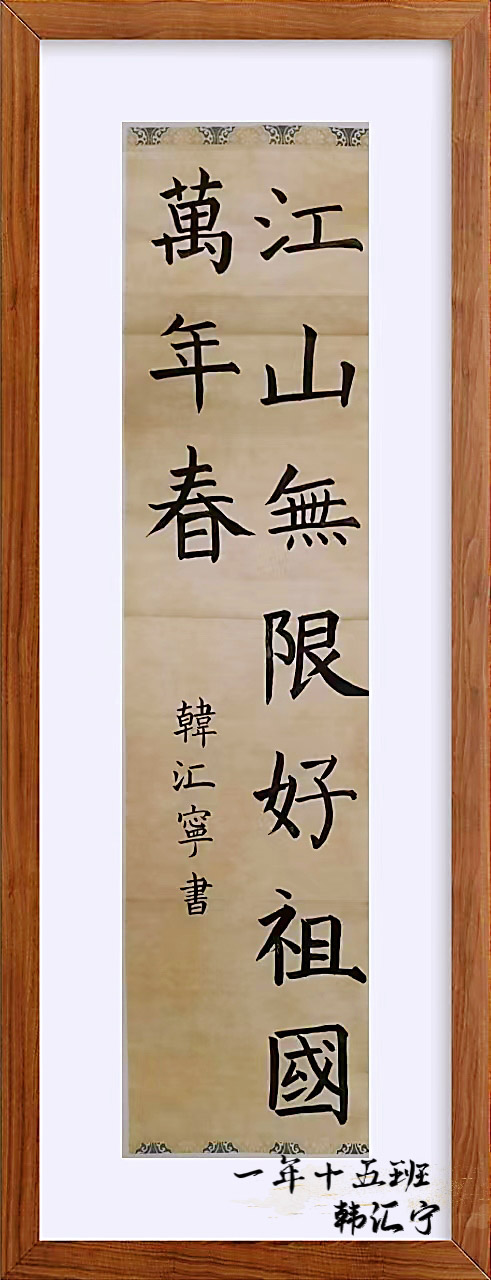 江山無限好祖國
萬年春
韓汇寧書
一年十五班
韩汇宁